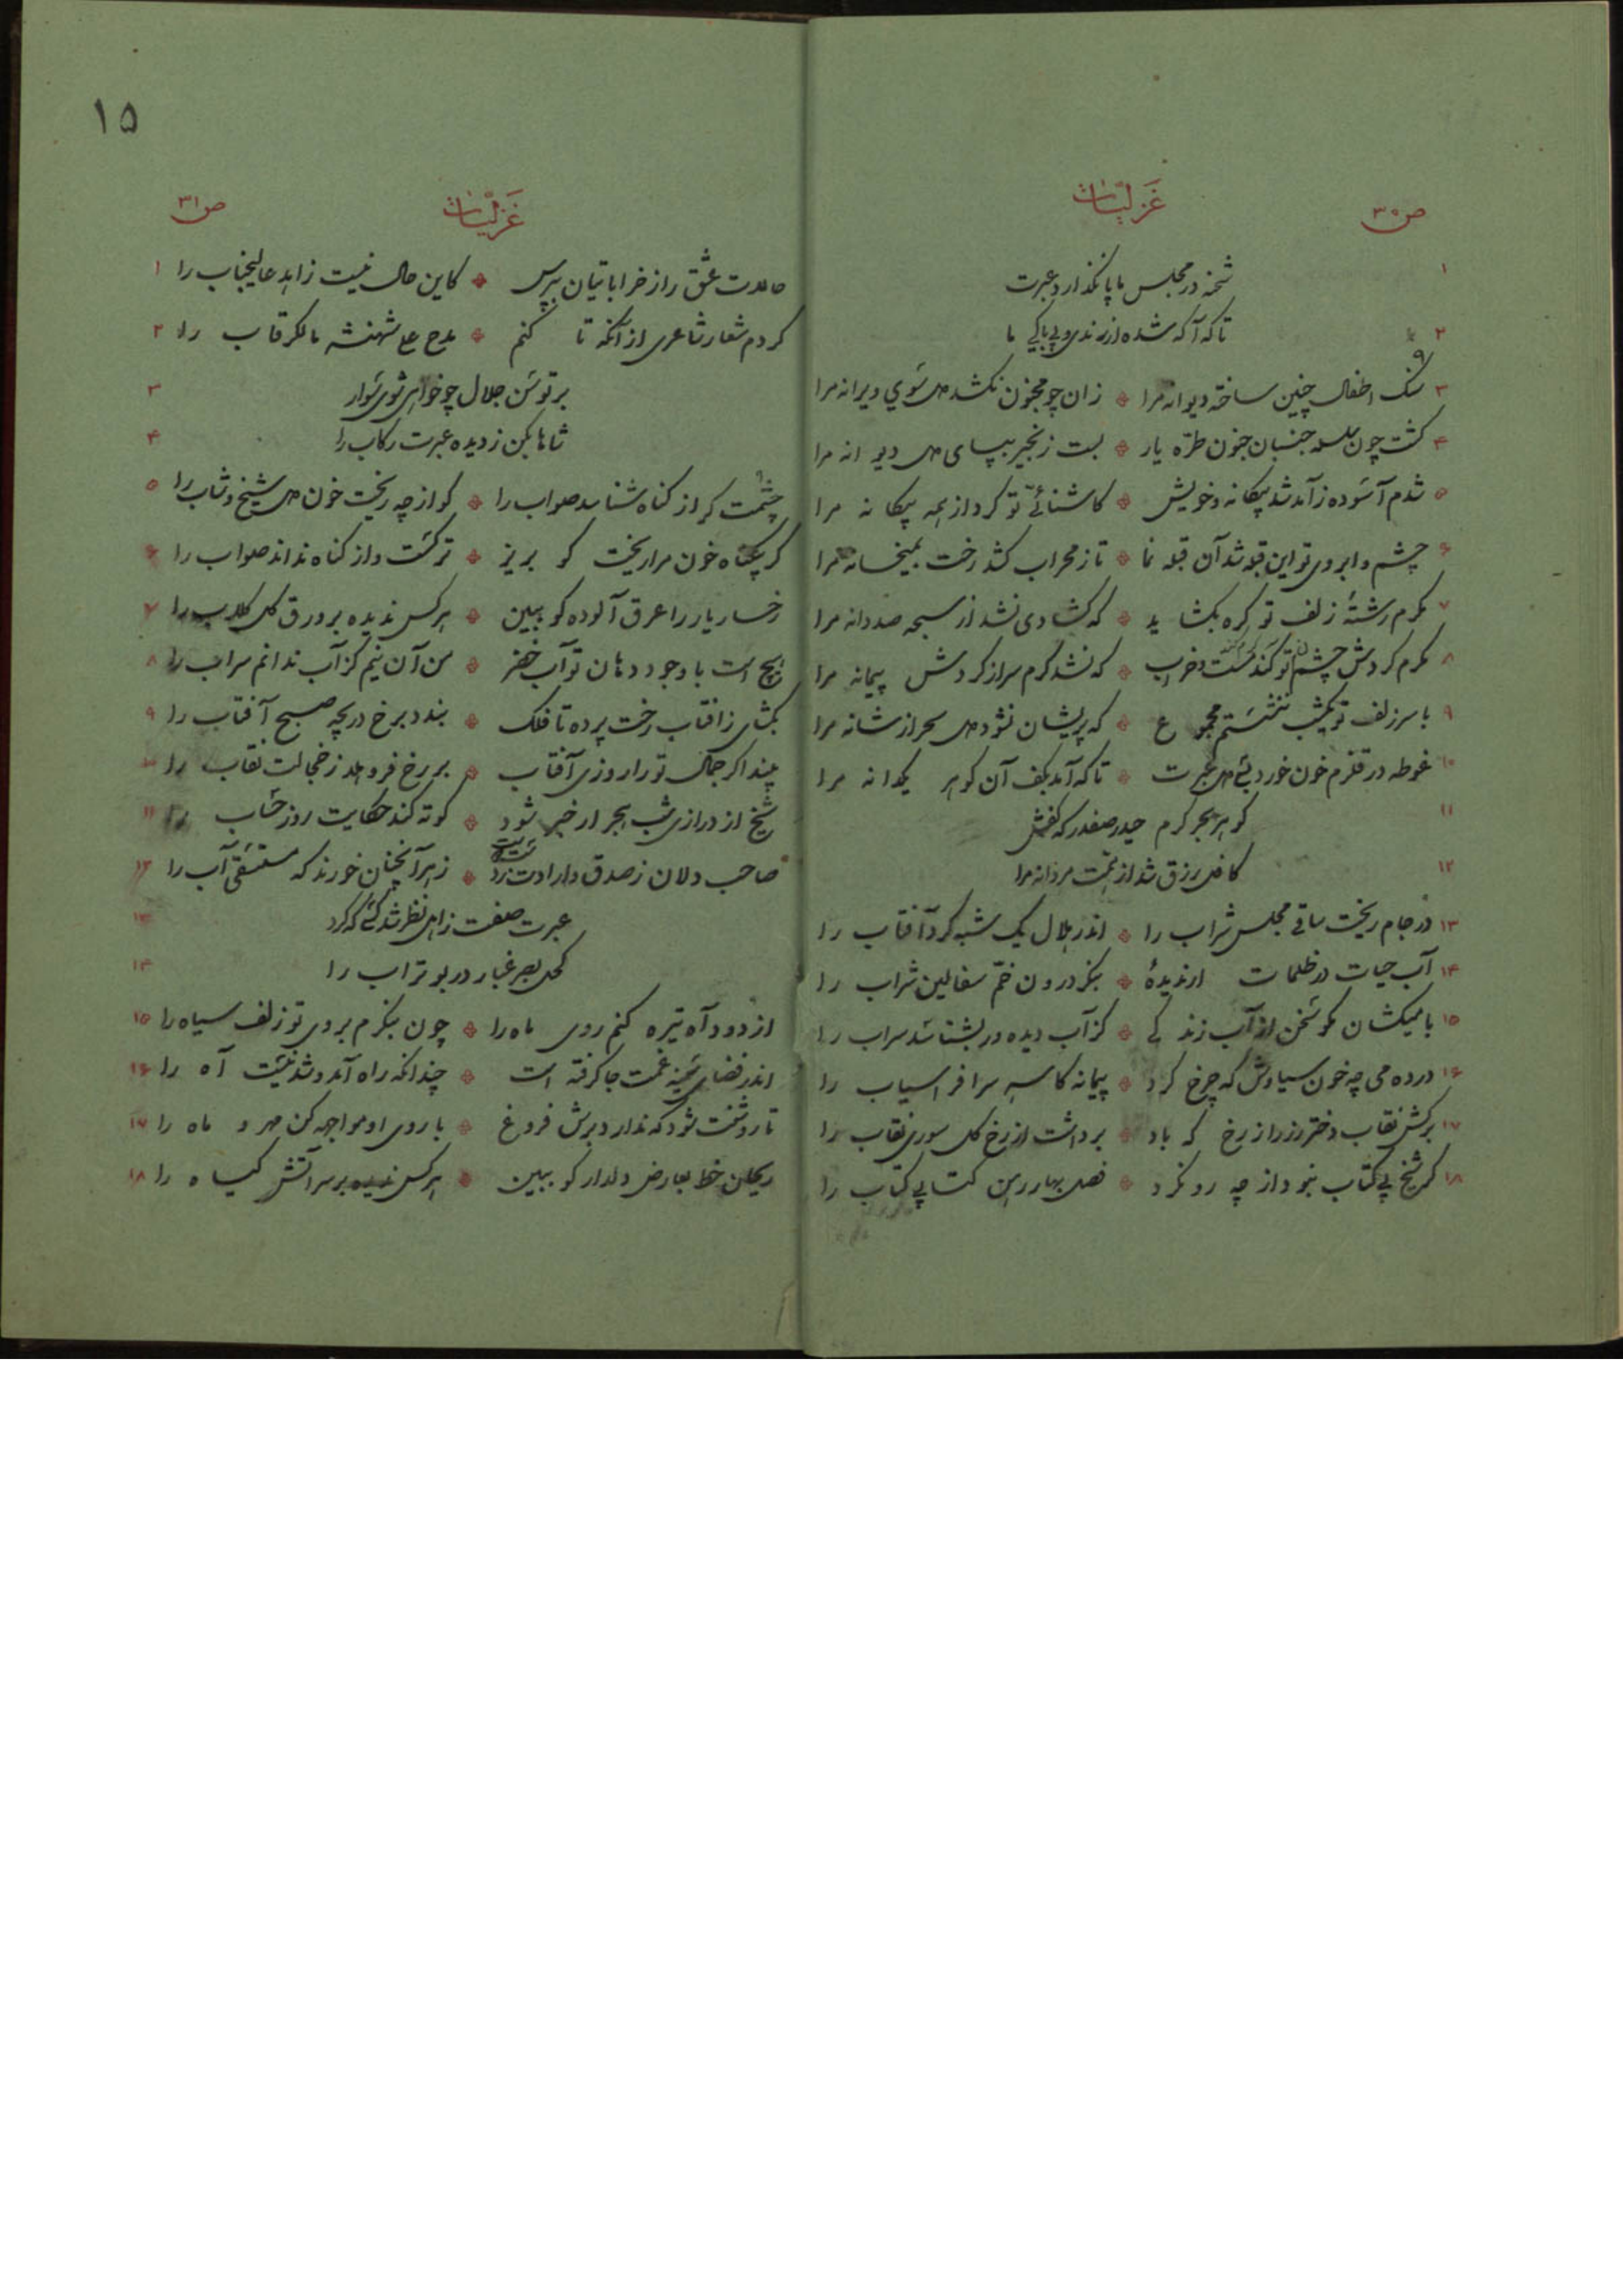 ص ۳۰
غزلیات
۱ شحنه در مجلس ما پا نگذارد عبرت
۲ تا که آگه شده از رندی و بی باکی ما
۳ سنک اطفال چنین ساخته دیوانه مرا ٭ زان چو مجنون نکشد دل سوی ویرانه مرا
۴ کشت چون سلسله جنبان جنون طرّه یار ٭ بست زنجیر بپای دل دیوانه مرا
۵ شدم آسوده ز آمد شد بیکانه و خویش ٭ کاشنائی تو کرد از همه بیکانه مرا
۶ چشم و ابروی تو این قبله شد آن قبله نما ٭ تا ز محراب کشد رخت بمیخانه مرا
۷ مکرم رشتهٔ زلف تو کره بکشاید ٭ که کشادی نشد از سبحه صد دانه مرا
۸ مکرم کردش چشمان تو کند مست و خراب ٭ که نشد کرم سر از کردش پیمانه مرا
۹ با سر زلف تو یکشب ننشستم مجموع ٭ که پریشان نشود دل سحر از شانه مرا
۱۰ غوطه در قلزم خون خورد بسی دل عبرت ٭ تا که آمد بکف آن کوهر یکدانه مرا
۱۱ کوهر بحر کرم حیدر صفدر که کفش
۱۲ کافل رزق شد از همّت مردانه مرا
۱۳ در جام ریخت ساقی مجلس شراب را ٭ اندر هلال یک شبه کرد آفتاب را
۱۴ آب حیات در ظلمات ار ندیدهٔ ٭ بنکر درون خمّ سفالین شراب را
۱۵ با میکشان مکو سخن از آب زندکی ٭ کز آب دیده در بشناسد سراب را
۱۶ در ده می چه خون سیاوش که چرخ کرد ٭ پیمانه کاسه سر افراسیاب را
۱۷ برکش نقاب دختر رز را ز رخ که باد ٭ برداشت از رخ کل سوری نقاب را
۱۸ کر شیخ بی کتاب نبود از چه رو نکرد ٭ فصل بهار رهن کتابی کتاب را
۱۵
غزلیات
ص ۳۱
۱ حالات عشق را ز خراباتیان بپرس ٭ کاین حال نیست زاهد عالیجناب را
۲ کردم شعار شاعری از آنکه تا کنم ٭ مدح علی شهنشه مالکرقاب را
۳ بر توسن جلال چو خواهی شوی سوار
۴ شاها بکن ز دیده عبرت رکاب را
۵ چشمت کر از کناه شناسد صواب را ٭ کو از چه ریخت خون دل شیخ و شاب را
۶ کر بیکناه خون مرا ریخت کو بریز ٭ ترکست و از کناه نداند صواب را
۷ رخسار یار را عرق آلوده کو ببین ٭ هرکس ندیده بر ورق کل کلاب را
۸ هیچ است با وجود دهان تو آب خضر ٭ من آن نیم کز آب ندانم سراب را
۹ بکشای ز افتاب رخت پرده تا فلک ٭ بندد برخ دریچه صبح آفتاب را
۱۰ بیند اکر جمال تو را روزی آفتاب ٭ بر رخ فرو هلد ز خجالت نقاب را
۱۱ شیخ از درازی شب هجر ار خبر شود ٭ کوته کند حکایت روز حساب را
۱۲ صاحب دلان ز صدق و ارادت ز دست دوست ٭ زهر آنچنان خورند که مستسقی آب را
۱۳ عبرت صفت ز اهل نظر شد کسی که کرد
۱۴ کحل بصر غبار در بوتراب را
۱۵ از دود آه تیره کنم روی ماه را ٭ چون بنکرم بروی تو زلف سیاه را
۱۶ اندر فضای سینه غمت جا کرفته است ٭ چندانکه راه آمد و شد نیست آه را
۱۷ تا روشنت شود که ندارد برش فروغ ٭ با روی او مواجهه کن مهر و ماه را
۱۸ ریحان خط بعارض دلدار کو ببین ٭ هرکس ندیده بر سر آتش کیاه را